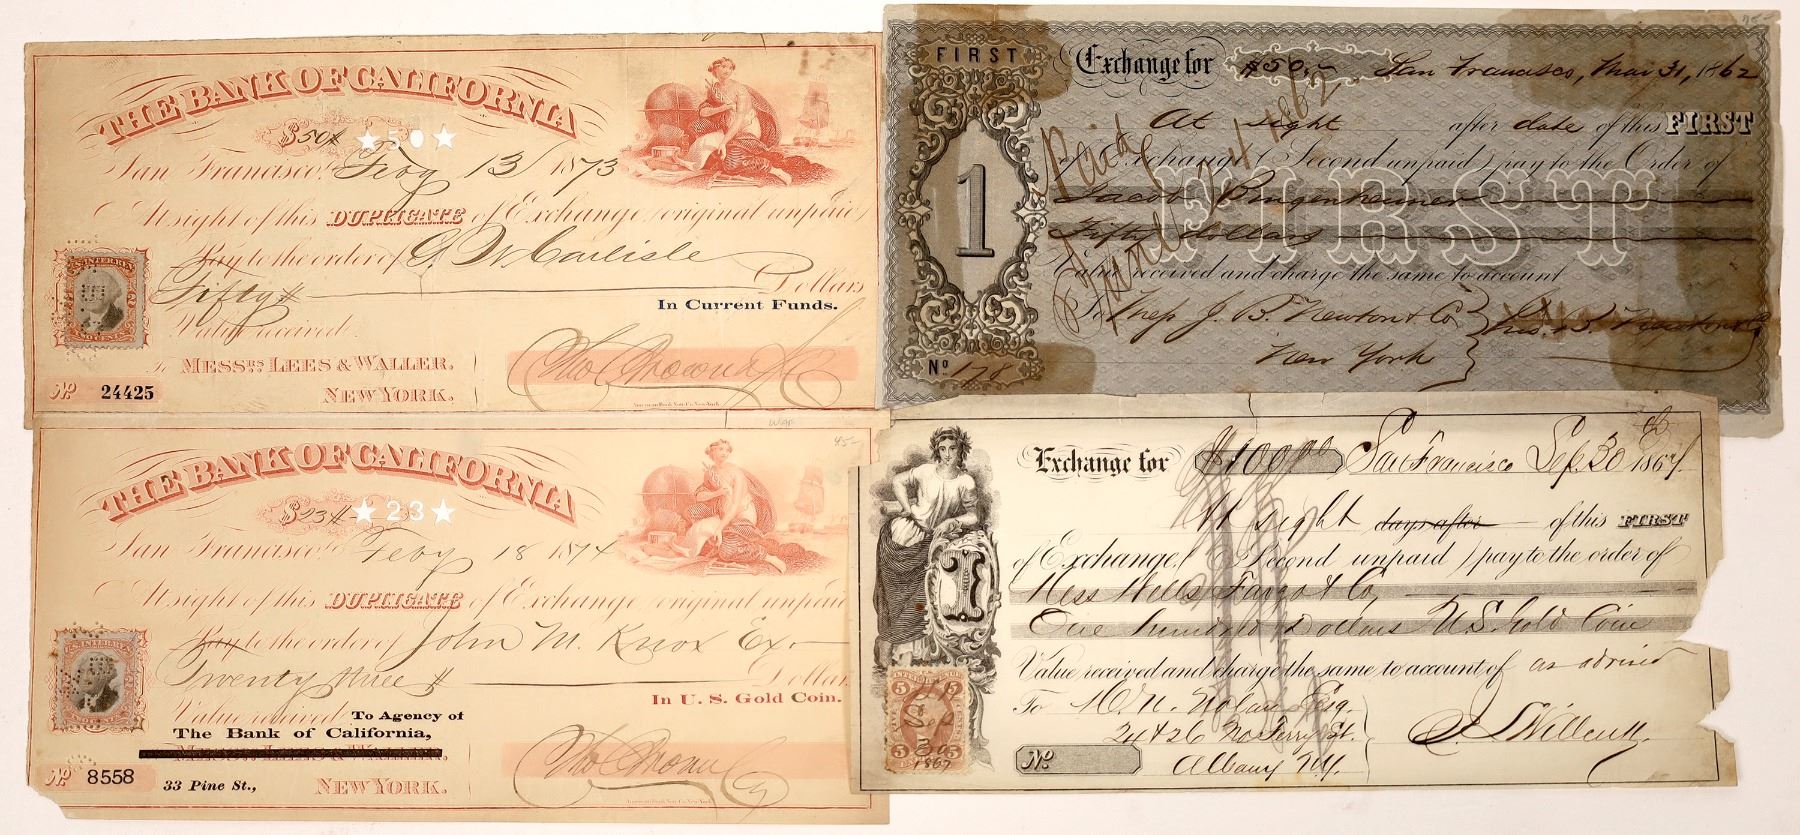 THE BANK OF CALIFORNIA
$50 ★50★
San Francisco, Feby 13 1873
At sight of this DUPLICATE of Exchange (original unpaid
Pay to the order of J. W. Carlisle
Fifty Dollars
In Current Funds.
Value received
To MESSRS LEES & WALLER.
NEW YORK.
No 24425
American Bank Note Co. New York
U.S. INTER. REV.
THE BANK OF CALIFORNIA
$23 ★23★
45-
San Francisco, Feby 18 1874
At sight of this DUPLICATE of Exchange (original unpaid
Pay to the order of John M. Knox Ex.
Twenty three Dollars
In U. S. Gold Coin.
Value received To Agency of
The Bank of California,
MESSRS LEES & WALLER.
33 Pine St., NEW YORK.
No 8558
U.S. INTER. REV.
FIRST Exchange for $50.- San Francisco, May 31, 1862
At sight after date of this FIRST
of Exchange (Second unpaid) pay to the Order of
Jacob Bingenheimer
Fifty Dollars
FIRST
Value received and charge the same to account
To Mess J. B. Newton & Co
New York
1
No 178
Paid
June 24 1862
Exchange for $100.00 San Francisco Sep. 30 1867.
At sight days after of this FIRST
of Exchange (Second unpaid) pay to the order of
Mess Wells Fargo & Co
One hundred Dollars U.S. Gold Coin
Value received and charge the same to account of as advised
To
24 & 26 No Ferry St.
Albany NY.
No
1
5 5
5 5
Sep
30
1867